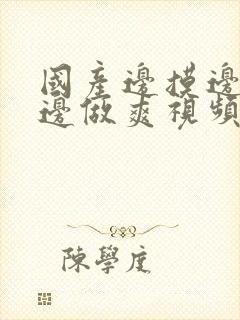 國產邊摸邊
邊做爽視頻
陳學庢